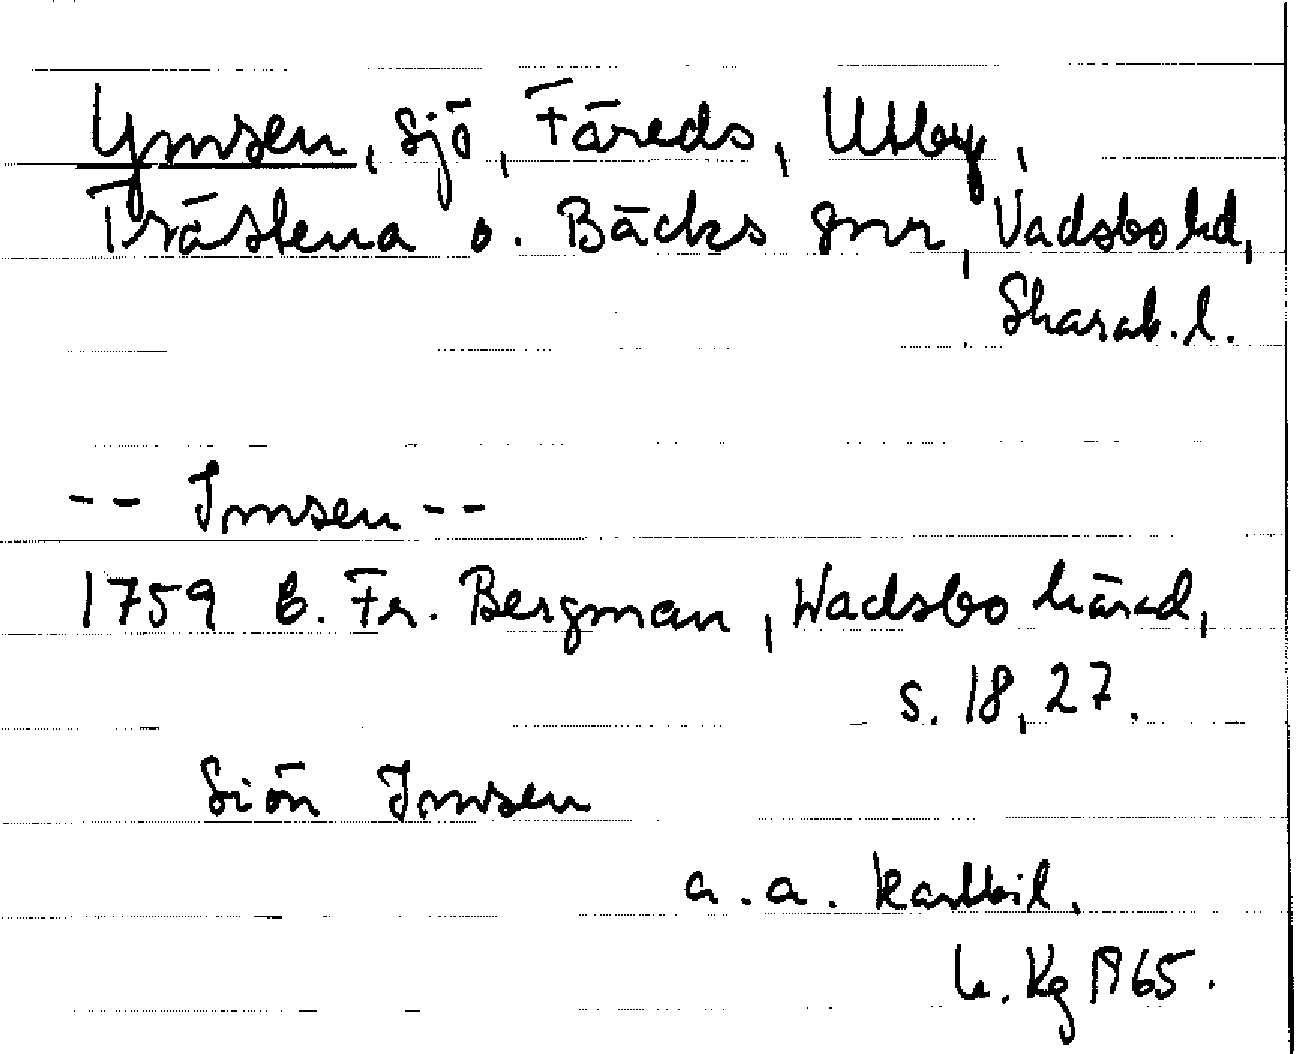 Ymsen, sjö, Färeds, Utby,
Trästena o. Bäcks snr, Vadsbo hd,
Skarab. l.
-- Imsen --
1759 B. Fr. Bergman, Wadsbo härad,
s. 18, 27.
Siön Imsen
a. a. kartbil.
Kg 1965.